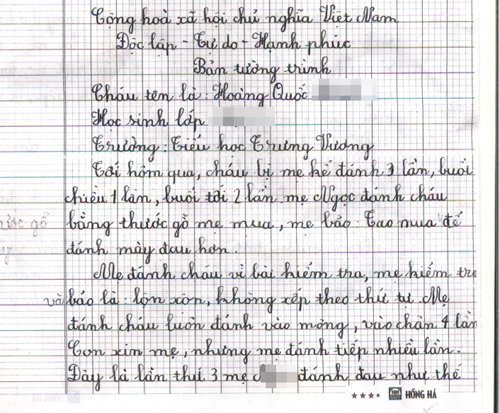 Cộng hoà xã hội chủ nghĩa Việt Nam
Độc lập - Tự do - Hạnh phúc
Bản tường trình
Cháu tên là: Hoàng Quốc
Học sinh lớp
Trường: Tiểu học Trưng Vương
Tối hôm qua, cháu bị mẹ kế đánh 3 lần, buổi
chiều 1 lần, buổi tối 2 lần, mẹ Ngọc đánh cháu
bằng thước gỗ mẹ mua, mẹ bảo: Tao mua để
đánh mày đau hơn.
Mẹ đánh cháu vì bài kiểm tra, mẹ kiểm tra
và bảo là: lộn xộn, không xếp theo thứ tự. Mẹ
đánh cháu luôn đánh vào mông, vào chân 4 lần
Con xin mẹ, nhưng mẹ đánh tiếp nhiều lần.
Đây là lần thứ 3 mẹ đánh đau như thế
HỒNG HÀ